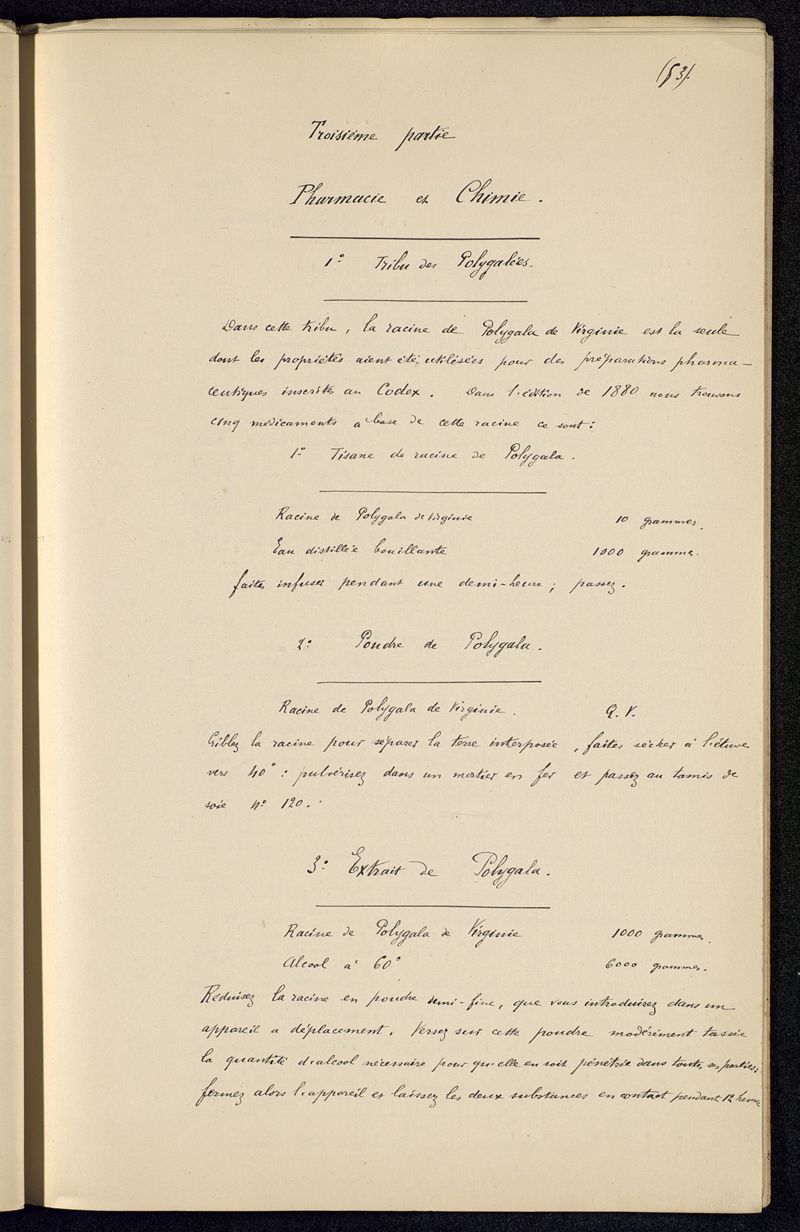 (53).
Troisième partie
Pharmacie et Chimie.
1° Tribu des Polygalées.
Dans cette tribu, la racine de Polygala de Virginie est la seule
dont les propriétés aient été utilisées pour des préparations pharma-
ceutiques inscrites au Codex. Dans l'édition de 1880 nous trouvons
cinq médicaments a base de cette racine ce sont:
1° Tisane de racine de Polygala.
Racine de Polygala de Virginie 10 grammes.
Eau distillée bouillante 1000 grammes.
faites infuser pendant une demi-heure; passez.
2° Poudre de Polygala.
Racine de Polygala de Virginie. Q.V.
Criblez la racine pour séparer la terre interposée, faites sécher à l'étuve
vers 40°: pulvérisez dans un mortier en fer et passez au tamis de
soie N° 120.
3° Extrait de Polygala.
Racine de Polygala de Virginie 1000 grammes.
Alcool à 60° 6000 grammes.
Réduisez la racine en poudre demi-fine, que vous introduirez dans un
appareil a déplacement. Versez sur cette poudre modérément tassée
la quantité d'alcool nécessaire pour qu'elle en soit pénétrée dans toutes ses parties;
fermez alors l'appareil et laissez les deux substances en contact pendant 12 heures